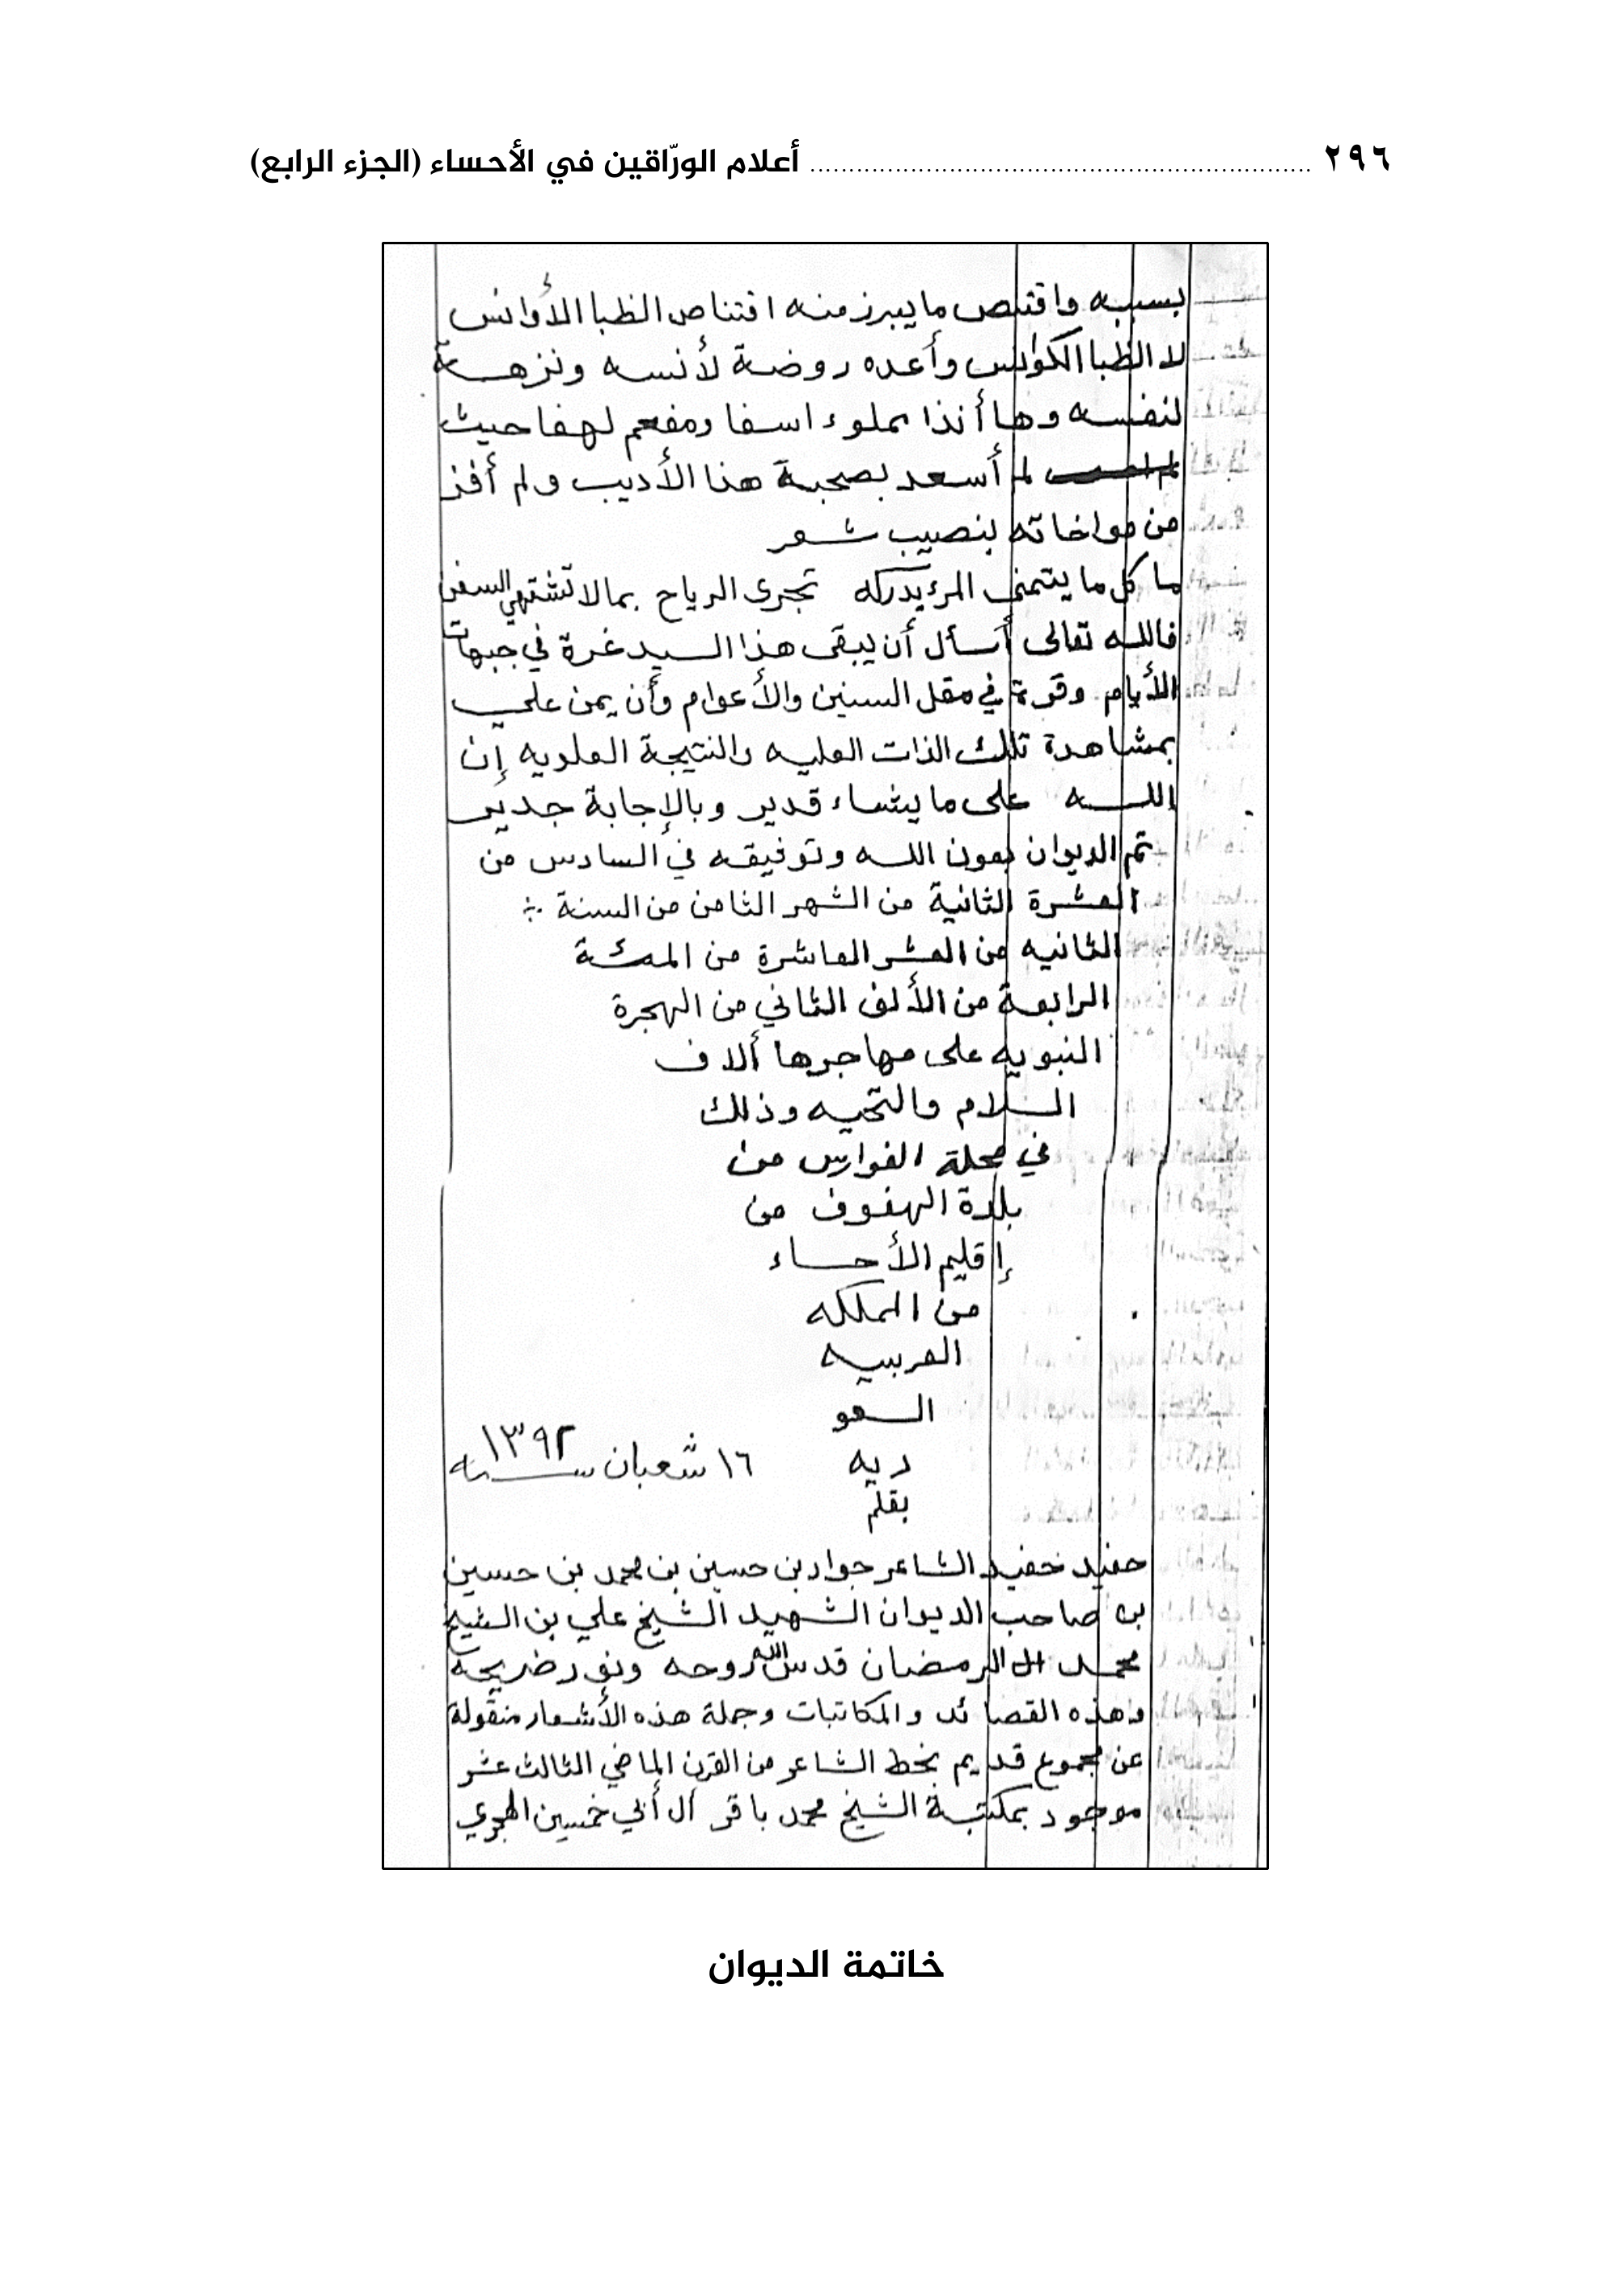 ٢٩٦ ........ أعلام الورّاقين في الأحساء (الجزء الرابع)
بسببه واقتنص ما يبرز منه اقتناص الظبا الأوانس
لا الظبا الكوانس وأعده روضة لأنسه ونزهة
لنفسه وها أنذا مملوء اسفا ومفعم لهفا حيث
لم أسعد بصحبة هذا الأديب ولم أفز
من مواخاته بنصيب شعر
ما كل ما يتمنى المرؤ يدركه تجرى الرياح بمالا تشتهي السفن
فالله تعالى أسأل أن يبقى هذا السيد غرة في جبهات
الأيام وقرة في مقل السنين والأعوام وأن يمن علي
بمشاهدة تلك الذات العليه والنتيجة العلويه إن
الله على ما يشاء قدير وبالإجابة جدير
تم الديوان بعون الله وتوفيقه في السادس من
العشرة الثانية من الشهر الثامن من السنة
الثانيه من العشر العاشرة من المئة
الرابعة من الألف الثاني من الهجرة
النبويه على مهاجرها ألاف
السلام والتحيه وذلك
في محلة الفوارس من
بلدة الهفوف من
إقليم الأحساء
من المملكه
العربيه
السعو
ديه
١٦ شعبان سنه ١٣٩٢
بقلم
حفيد حفيد الشاعر جواد بن حسين بن محمد بن حسين
بن صاحب الديوان الشهيد الشيخ علي بن الشيخ
محمد ال الرمضان قدس الله روحه ونور ضريحه
وهذه القصائد والمكاتبات وجملة هذه الأشعار منقولة
عن مجموع قديم بخط الشاعر من القرن الماضي الثالث عشر
موجود بمكتبة الشيخ محمد باقر آل أبي خمسين الهجري
خاتمة الديوان